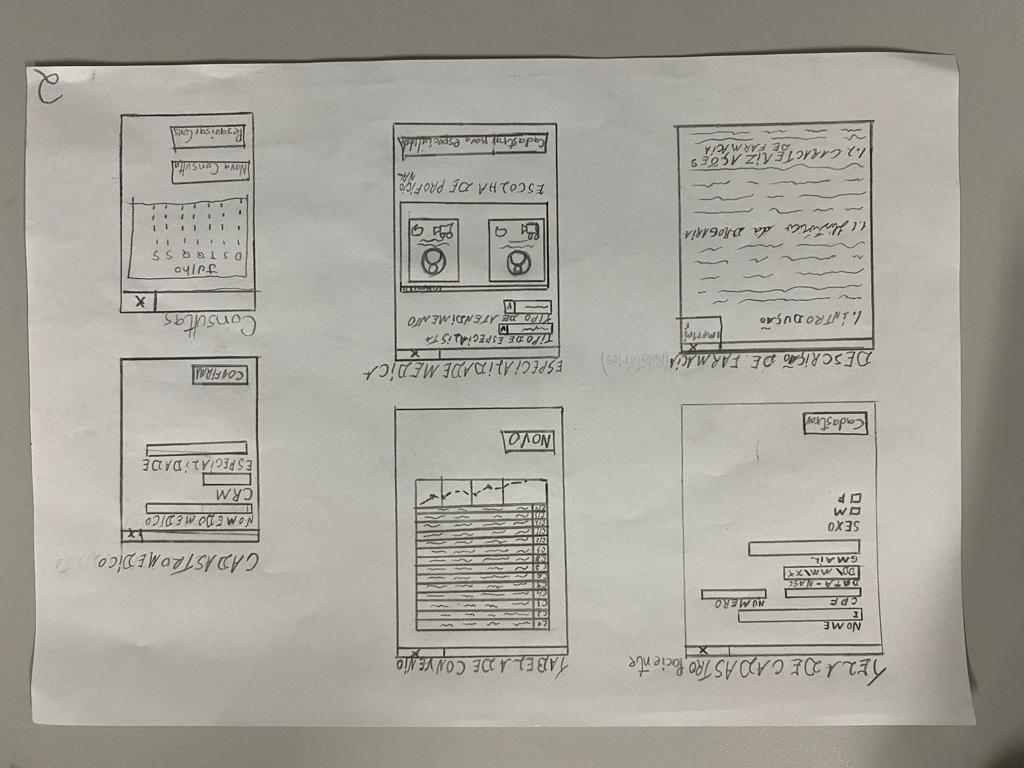 TELA DE CADASTRO Paciente
X
NOME
I
CPF
NUMERO
DATA-NASC
DD\MM\XX
GMAIL
SEXO
M
F
Cadastrar
TABELA DE CONVENIO
X
C1
C2
C3
C4
C5
C6
C7
C8
C9
C10
C11
C12
C13
C14
NOVO
CADASTRO MEDICO
X
NOME DO MEDICO
CRM
ESPECIALIDADE
CONFIRMA
DESCRIÇÃO DE FARMACIA (Relatórios)
X
Imprimir
1. INTRODUÇÃO
1.1 Histórico da DROGARIA
1.2 CARACTERIZAÇÕES
DE FARMACIA
ESPECIALIDADE MEDICA
X
TIPO DE ESPECIALISTA
TIPO DE ATENDIMENTO
ESCOLHA DE PROFICIO
NAL
Cadastrar nova especialidad
Consultas
X
Julho
D S T Q Q S S
Nova Consulta
Pesquisar Cons
2